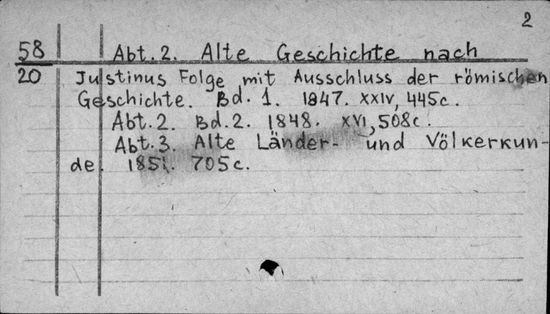 2
58 Abt. 2. Alte Geschichte nach
20 Justinus Folge mit Ausschluss der römischen
Geschichte. Bd. 1. 1847. XXIV, 445c.
Abt. 2. Bd. 2. 1848. XVI, 508c.
Abt. 3. Alte Länder- und Völkerkun-
de. 1851. 705c.